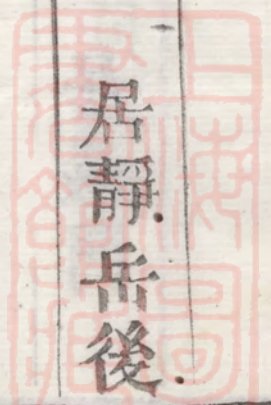 居靜岳後